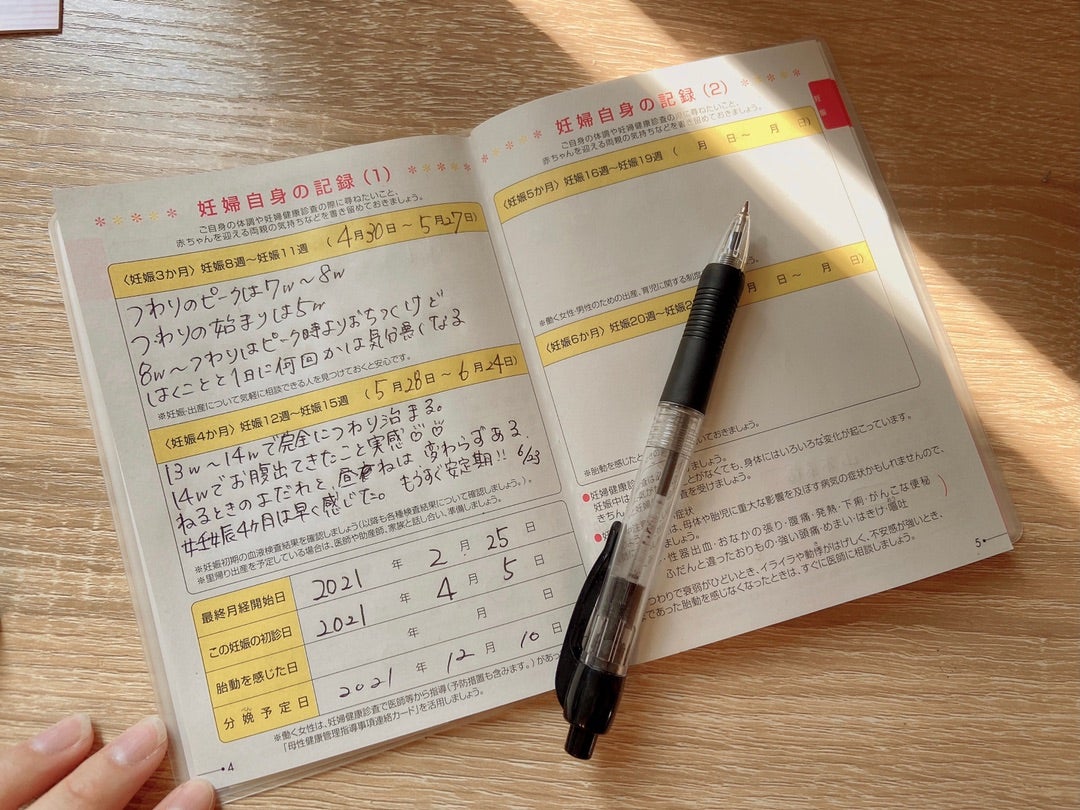 妊婦自身の記録(1)
ご自身の体調や妊婦健康診査の際に尋ねたいこと、
赤ちゃんを迎える両親の気持ちなどを書き留めておきましょう。
〈妊娠3か月〉妊娠8週~妊娠11週 (4月30日~5月27日)
つわりのピークは7w~8w
つわりの始まりは5w
8w~つわりはピーク時よりおちつくけど
はくことと1日に何回かは気分悪くなる
※妊娠・出産について気軽に相談できる人を見つけておくと安心です。
〈妊娠4か月〉妊娠12週~妊娠15週 (5月28日~6月24日)
13w~14wで完全につわり治まる。
14wでお腹出てきたこと実感
ねるときのよだれと、昼ねは変わらずある
妊娠4ヶ月は早く感じた。もうすぐ安定期!! 6/23
※妊娠初期の血液検査結果を確認しましょう(以降も各種検査結果について確認しましょう)。
※里帰り出産を予定している場合は、医師や助産師、家族と話し合い、準備しましょう。
最終月経開始日 2021年 2月 25日
この妊娠の初診日 2021年 4月 5日
胎動を感じた日 年 月 日
分娩予定日 2021年 12月 10日
べん
※働く女性は、妊婦健康診査で医師等から指導(予防措置も含みます。)があっ
「母性健康管理指導事項連絡カード」を活用しましょう。
4
妊婦自身の記録(2)
ご自身の体調や妊婦健康診査の際に尋ねたいこと、
赤ちゃんを迎える両親の気持ちなどを書き留めておきましょう。
〈妊娠5か月〉妊娠16週~妊娠19週 ( 月 日~ 月 日)
※働く女性・男性のための出産、育児に関する制度
〈妊娠6か月〉妊娠20週~妊娠2 日~ 月 日)
いておきましょう。
※胎動を感じたと
ましょう。
とがなくても、身体にはいろいろな変化が起こっています。
査を受けましょう。
症状
は、母体や胎児に重大な影響を及ぼす病気の症状かもしれませんので、
ましょう。
性器出血・おなかの張り・腹痛・発熱・下痢・がんこな便秘
ふだんと違ったおりもの・強い頭痛・めまい・はきけ・嘔吐
つわりで衰弱がひどいとき、イライラや動悸がはげしく、不安感が強いとき、
であった胎動を感じなくなったときは、すぐに医師に相談しましょう。
5